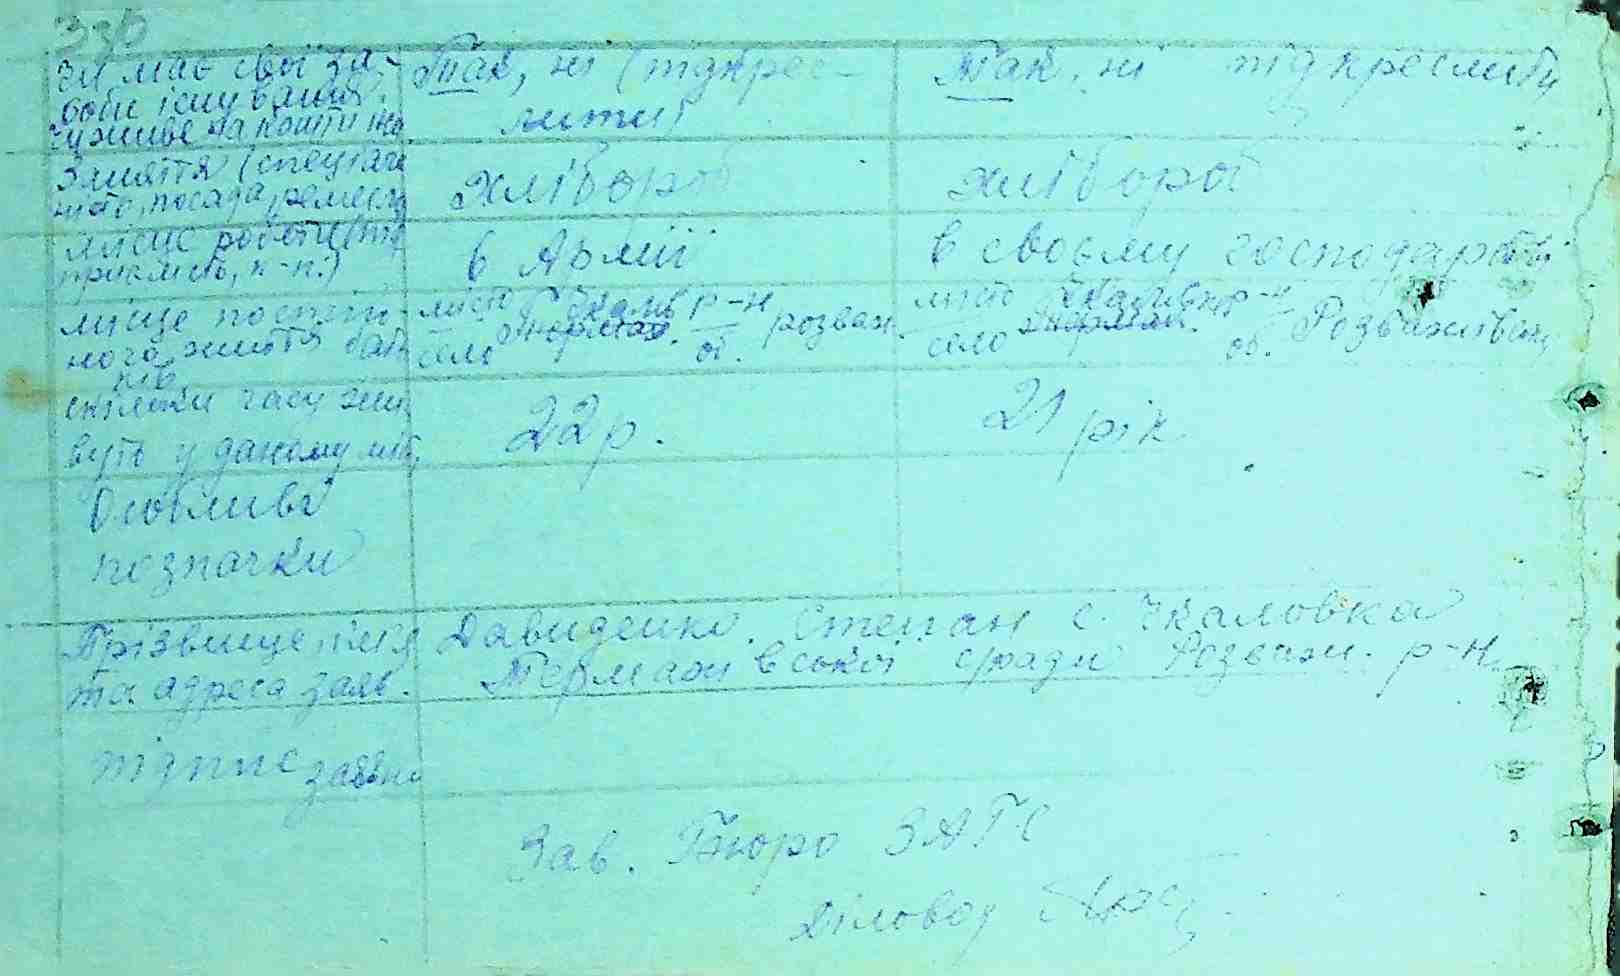 33б
Чи має свої за-
соби існування,
чи живе на кошти
Так, ні (підкрес-
лити)
Так, ні підкреслити
Заняття (спеціаль
ність, посада, ремесло
хлібороб
хлібороб
місце роботи
приємств, к-п.)
в Армії
в своєму господарстві
місце постій-
ного життя бать
ків
місто Чкалів р-н
село об. розваж.
місто р-н
село об. Розважівськ
скільки часу жи
вуть у даному міс.
22 р.
21 рік
Особливі
позначки
Прізвище ім'я
та адреса заяв.
Давиденко. Степан с. Чкаловка
Термахівської сради Розваж. р-н.
підпис заявн
Зав. Бюро ЗАГС
Діловод